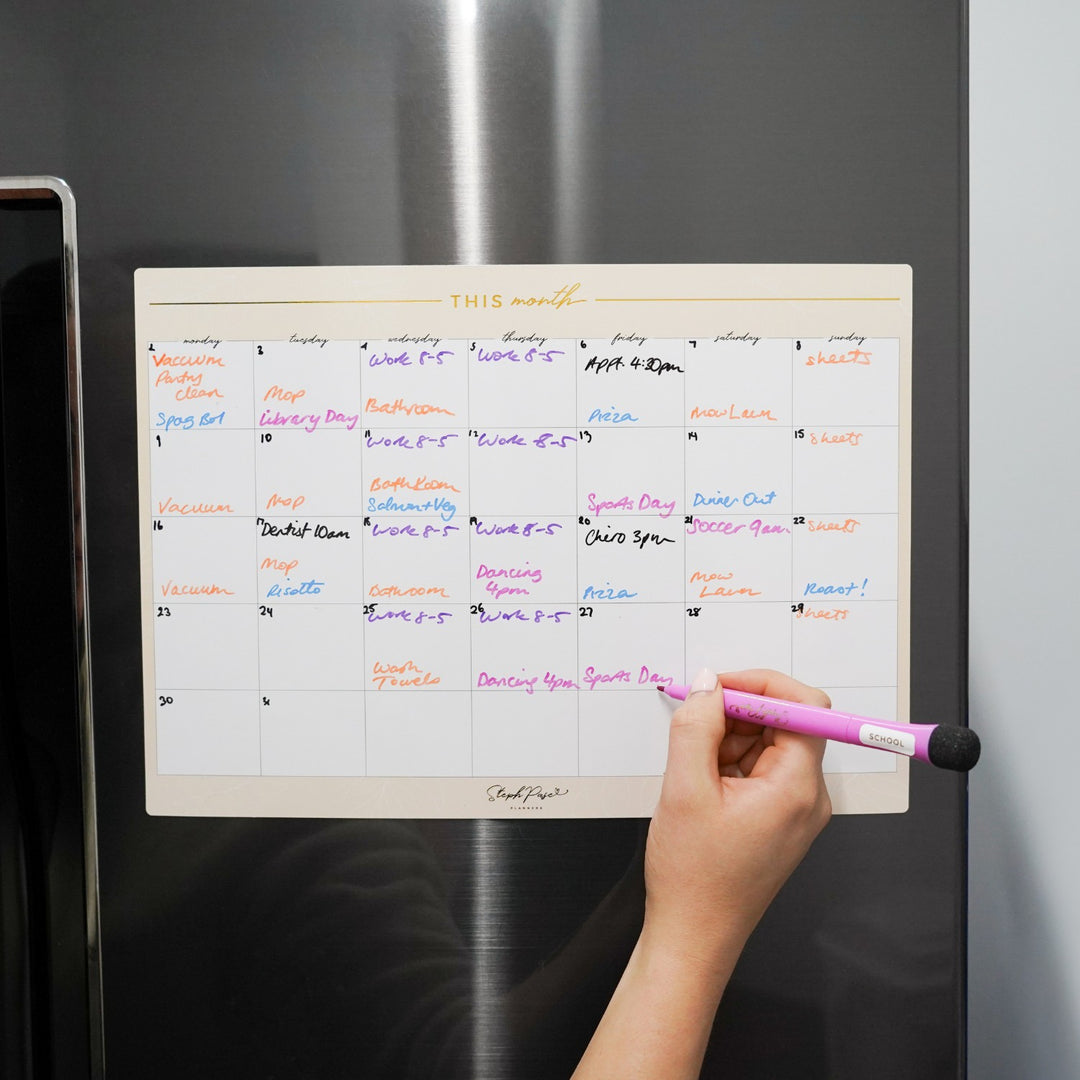 THIS month
monday tuesday wednesday thursday friday saturday sunday
2
Vacuum
Pantry
clean
Spag Bol
3
Mop
Library Day
4
Work 8-5
Bathroom
5
Work 8-5
6
Appt. 4:30pm
Pizza
7
Mow Lawn
8
sheets
9
Vacuum
10
Mop
11
Work 8-5
Bathroom
Salmon+Veg
12
Work 8-5
13
Sports Day
14
Dinner Out
15
sheets
16
Vacuum
17
Dentist 10am
Mop
Risotto
18
Work 8-5
Bathroom
19
Work 8-5
Dancing
4pm
20
Chiro 3pm
Pizza
21
Soccer 9am
Mow
Lawn
22
sheets
Roast!
23
24
25
Work 8-5
Wash
Towels
26
Work 8-5
Dancing 4pm
27
Sports Day
28
29
sheets
30
31
SCHOOL
Steph Pase
PLANNERS